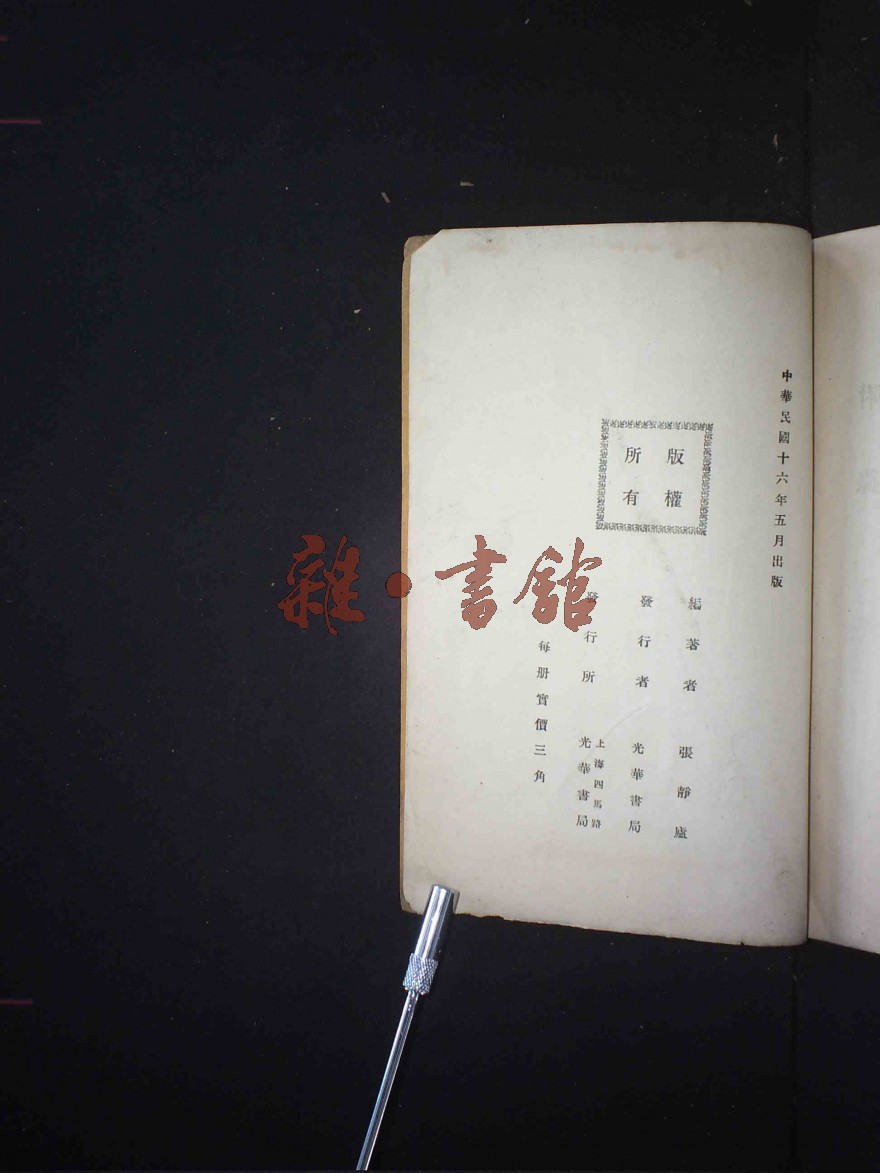 中華民國十六年五月出版
版權
所有
編著者 張靜廬
發行者 光華書局
發行所 上海四馬路
光華書局
每册實價三角
雜·書館